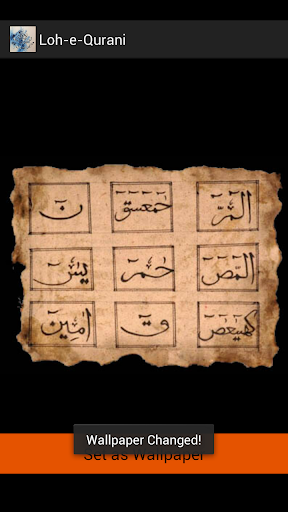 Loh-e-Qurani
الٓمٓرٰ حٰمٓعٓسٓقٓ نٓ
الٓمٓصٓ حٰمٓ يٰسٓ
كٓهٰيٰعٓصٓ قٓ اٰمِيْن
Wallpaper Changed!
Set as Wallpaper